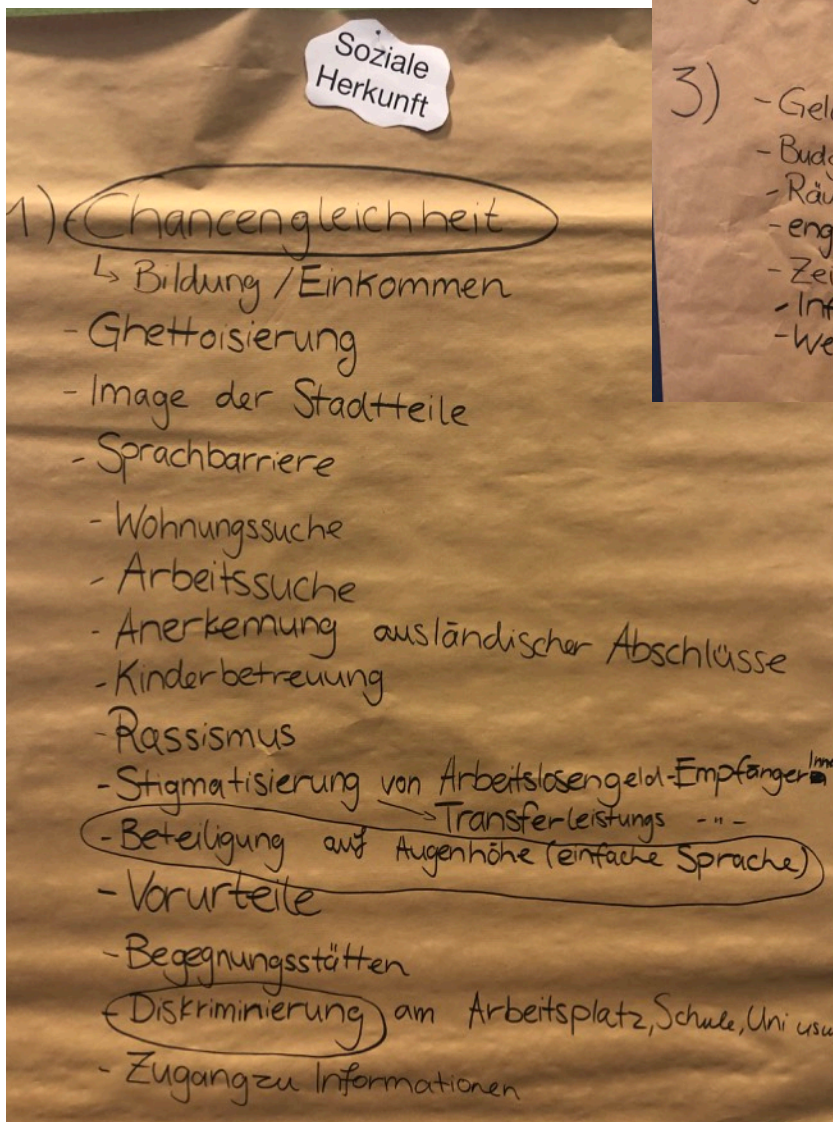 Soziale
Herkunft
1) - Chancengleichheit
↳ Bildung / Einkommen
- Ghettoisierung
- Image der Stadtteile
- Sprachbarriere
- Wohnungssuche
- Arbeitssuche
- Anerkennung ausländischer Abschlüsse
- Kinderbetreuung
- Rassismus
- Stigmatisierung von Arbeitslosengeld-Empfänger
→ Transferleistungs - " -
- Beteiligung auf Augenhöhe (einfache Sprache)
- Vorurteile
- Begegnungsstätten
- Diskriminierung am Arbeitsplatz, Schule, Uni
- Zugang zu Informationen
3)